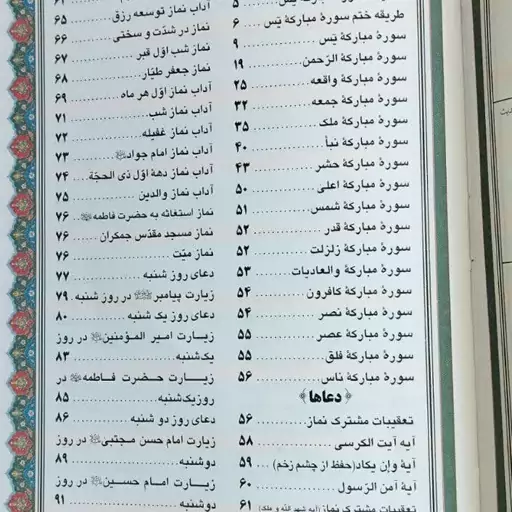 طریقه ختم سورهٔ مبارکهٔ یٰس ..... ۶
سورهٔ مبارکهٔ یٰس ..... ۹
سورهٔ مبارکهٔ الرّحمن ..... ۱۹
سورهٔ مبارکهٔ واقعه ..... ۲۵
سورهٔ مبارکهٔ جمعه ..... ۳۲
سورهٔ مبارکهٔ ملک ..... ۳۵
سورهٔ مبارکهٔ نبأ ..... ۴۰
سورهٔ مبارکهٔ حشر ..... ۴۳
سورهٔ مبارکهٔ اعلی ..... ۵۰
سورهٔ مبارکهٔ شمس ..... ۵۱
سورهٔ مبارکهٔ قدر ..... ۵۲
سورهٔ مبارکهٔ زلزلت ..... ۵۲
سورهٔ مبارکهٔ والعادیات ..... ۵۳
سورهٔ مبارکهٔ کافرون ..... ۵۴
سورهٔ مبارکهٔ نصر ..... ۵۴
سورهٔ مبارکهٔ عصر ..... ۵۵
سورهٔ مبارکهٔ فلق ..... ۵۵
سورهٔ مبارکهٔ ناس ..... ۵۶
﴿ دعاها ﴾
تعقیبات مشترک نماز ..... ۵۶
آیه آیت الکرسی ..... ۵۸
آیهٔ وإن یکاد(حفظ از چشم زخم) ... ۵۹
آیهٔ آمن الرّسول ..... ۶۰
تعقیبات مشترک نماز (آیه شهد الله و ملک) ... ۶۱
آداب نماز توسعه رزق ..... ۶۵
نماز در شدّت و سختی ..... ۶۶
نماز شب اوّل قبر ..... ۶۷
نماز جعفر طیّار ..... ۶۸
آداب نماز اوّل هر ماه ..... ۶۹
آداب نماز شب ..... ۷۱
آداب نماز غفیله ..... ۷۲
آداب نماز امام جواد ..... ۷۳
آداب نماز دههٔ اوّل ذی الحجّة ..... ۷۴
آداب نماز والدین ..... ۷۵
نماز استغاثه به حضرت فاطمه ..... ۷۶
نماز مسجد مقدّس جمکران ..... ۷۶
نماز میّت ..... ۷۶
دعای روز شنبه ..... ۷۷
زیارت پیامبر در روز شنبه . ۷۹
دعای روز یک شنبه ..... ۸۰
زیــارت امیـر المـؤمنین در روز
یک‌شنبه ..... ۸۳
زیــارت حضـرت فـاطمه در
روزیک‌شنبه ..... ۸۵
دعای روز دو شنبه ..... ۸۶
زیارت امام حسن مـجتبی در روز
دوشنبه ..... ۸۹
زیــارت امـام حسـین در روز
دوشنبه ..... ۹۱